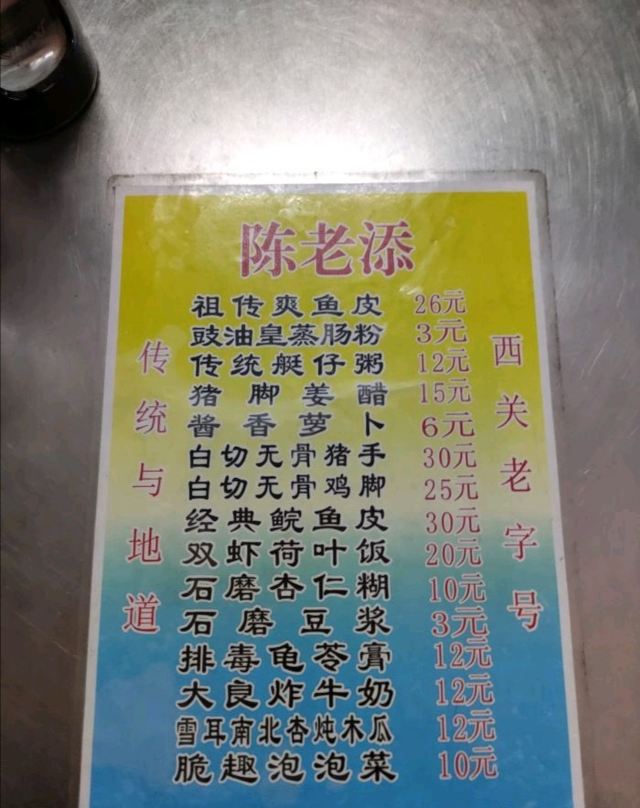 陈老添
祖传爽鱼皮 26元
豉油皇蒸肠粉 3元
传统艇仔粥 12元
猪脚姜醋 15元
酱香萝卜 6元
白切无骨猪手 30元
白切无骨鸡脚 25元
经典鲩鱼皮 30元
双虾荷叶饭 20元
石磨杏仁糊 10元
石磨豆浆 3元
排毒龟苓膏 12元
大良炸牛奶 12元
雪耳南北杏炖木瓜 12元
脆趣泡泡菜 10元
传统与地道
西关老字号